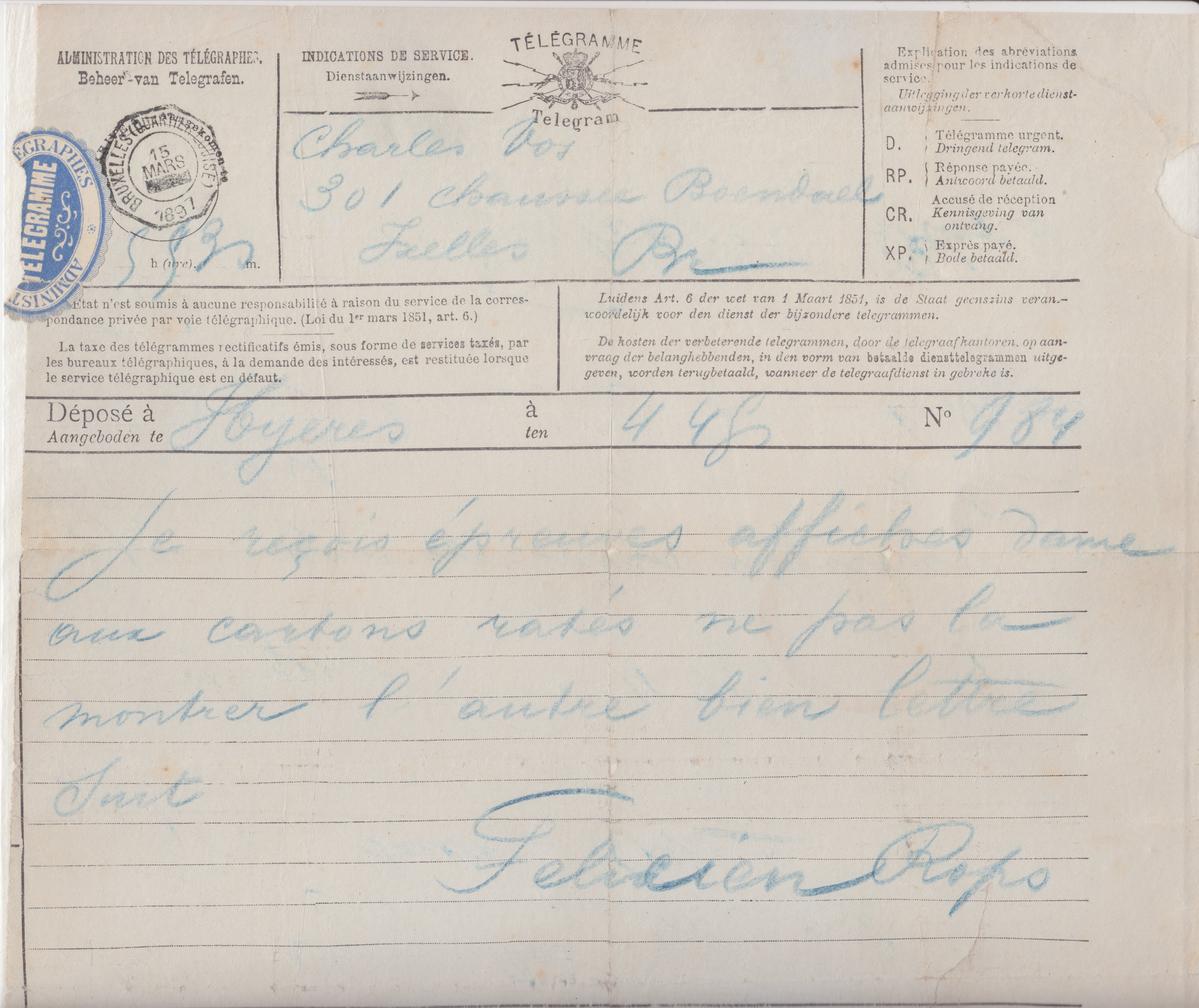 ADMINISTRATION DES TÉLÉGRAPHES.
Beheer van Telegrafen.
INDICATIONS DE SERVICE.
Dienstaanwijzingen.
TÉLÉGRAMME
Telegram
Explication des abréviations
admises pour les indications de
service.
Uitlegging der verkorte dienst-
aanwijzingen.
D. Télégramme urgent.
Dringend telegram.
RP. Réponse payée.
Antwoord betaald.
CR. Accusé de réception
Kennisgeving van
ontvang.
XP. Exprès payé.
Bode betaald.
BRUXELLES (QUARTIER LOUISE)
15
MARS
1897
TÉLÉGRAMME
h (ure). m.
Charles Vos
301 chaussée Boendael
Ixelles Br
L'État n'est soumis à aucune responsabilité à raison du service de la corres-
pondance privée par voie télégraphique. (Loi du 1er mars 1851, art. 6.)
La taxe des télégrammes rectificatifs émis, sous forme de services taxés, par
les bureaux télégraphiques, à la demande des intéressés, est restituée lorsque
le service télégraphique est en défaut.
Luidens Art. 6 der wet van 1 Maart 1851, is de Staat geenszins veran-
woordelijk voor den dienst der bijzondere telegrammen.
De kosten der verbeterende telegrammen, door de telegraafkantoren, op aan-
vraag der belanghebbenden, in den vorm van betaalde diensttelegrammen uitge-
geven, worden terugbetaald, wanneer de telegraafdienst in gebreke is.
Déposé à Hyeres à 4 45 No 984
Aangeboden te ten
Je reçois épreuves affiches dame
aux cartons ratés ne pas la
montrer l'autre bien lettre
Suit
Felicien Rops